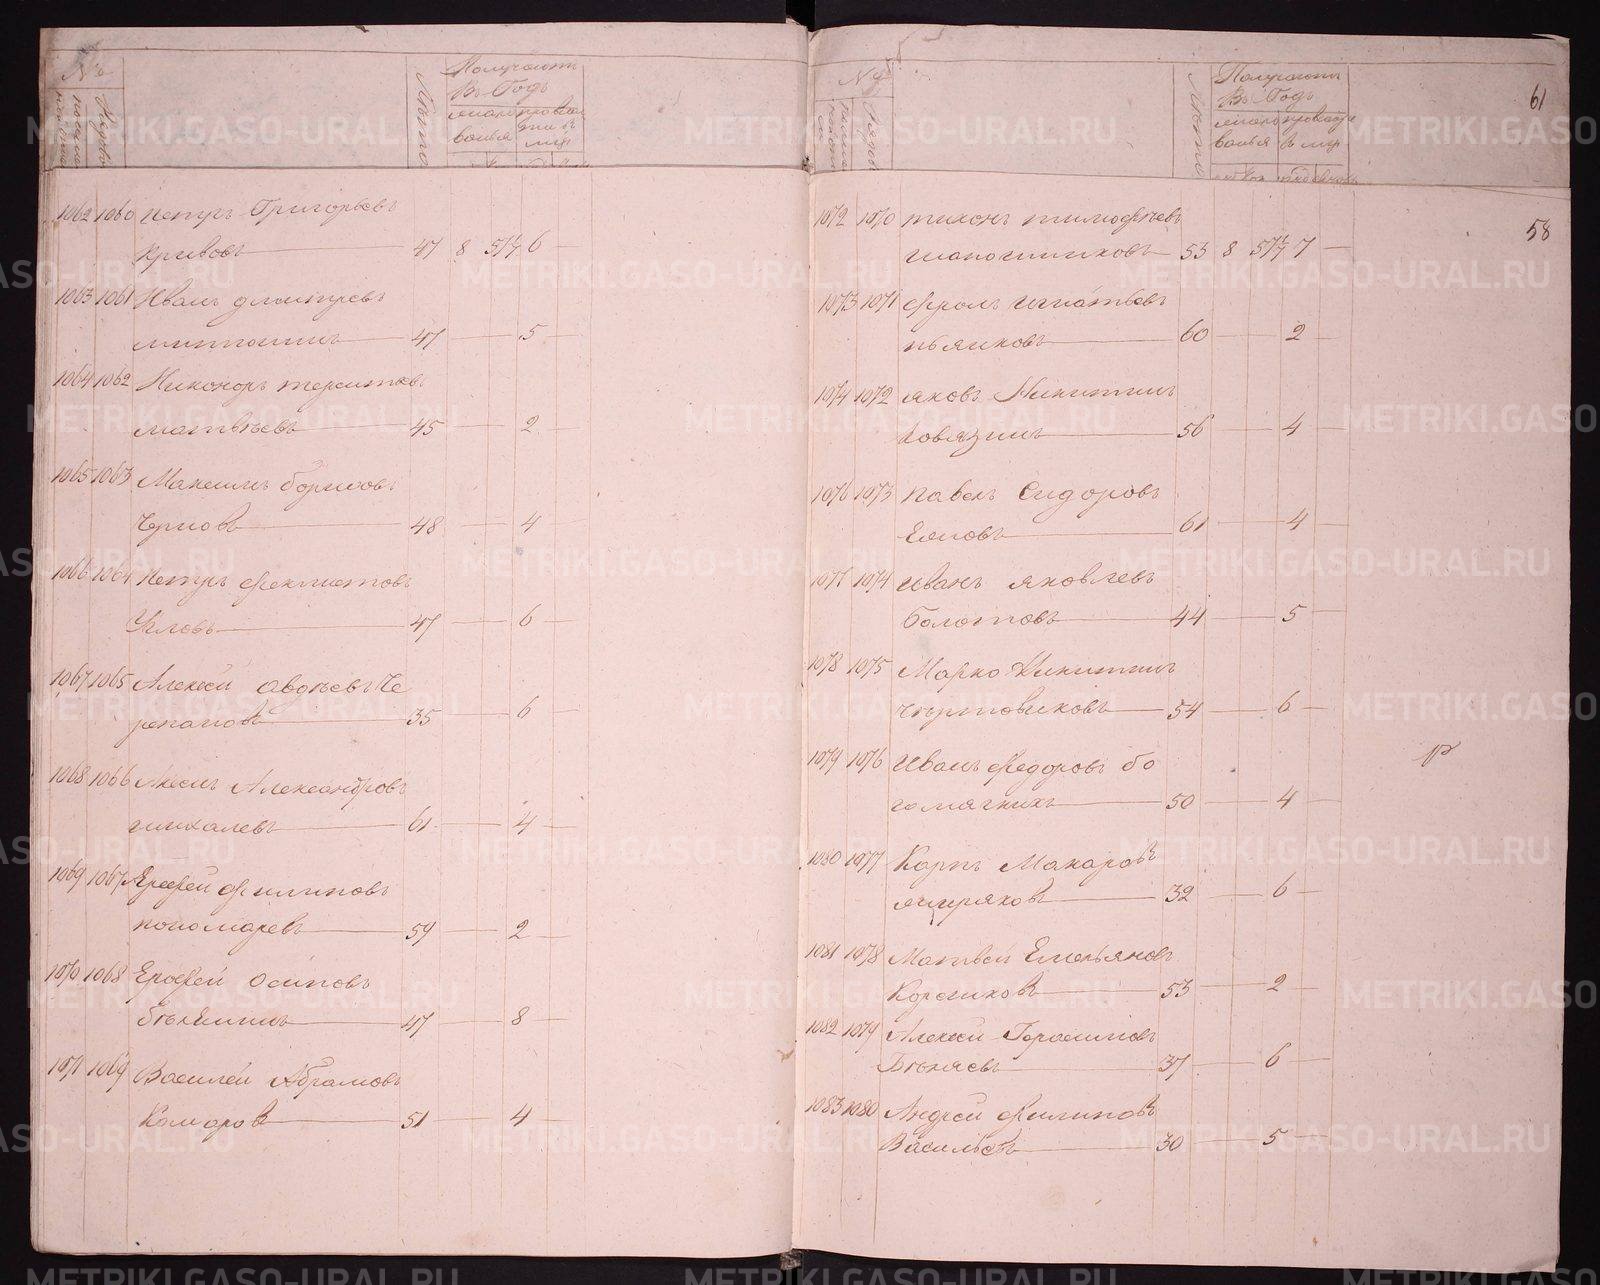 №
Лѣта
Получаютъ
Въ Годъ
1062 1060 Петръ Григорьевъ
Кривовъ 47 8 57 1/7 6
1063 1061 Иванъ дмитревъ
47 5
1064 1062 Никоноръ терентьевъ
матвѣевъ 45 2
1065 1063 Максимъ борисовъ
Черновъ 48 4
1066 1064 Петръ феклистовъ
47 6
1067 1065 Алексѣй авдѣевъ Че
репановъ 35 6
1068 1066 Александровъ
шихалевъ 61 4
1069 1067 Ерофей филиповъ
пономаревъ 59 2
1070 1068 Ерофей осиповъ
47 8
1071 1069 Василей Абрамовъ
Комаровъ 51 4
№
Лѣта
Получаютъ
Въ Годъ
61
58
1072 1070 тихонъ тимофѣевъ
шапошниковъ 53 8 57 1/7 7
1073 1071 фролъ игнатьевъ
пьянковъ 60 2
1074 1072 яковъ Никитинъ
говязинъ 56 4
1076 1073 павелъ Сидоровъ
61 4
1077 1074 иванъ яковлевъ
болотовъ 44 5
1078 1075 Марко Никитинъ
54 6
1079 1076 иванъ федоровъ бо
гомягкихъ 50 4
1080 1077 Карпъ Макаровъ
32 6
1081 1078 Матвей Емельяновъ
53 2
1082 1079 Алексей Герасимовъ
Бѣляевъ 37 6
1083 1080 Андрей филиповъ
Васильевъ 30 5
METRIKI.GASO-URAL.RU